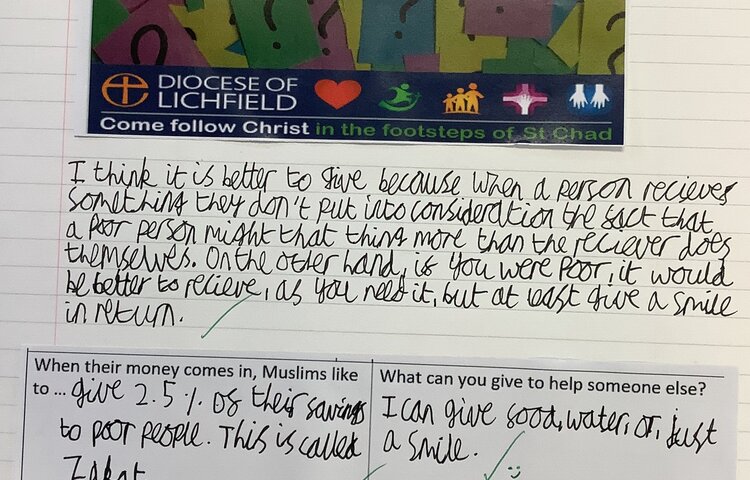 DIOCESE OF
LICHFIELD
Come follow Christ in the footsteps of St Chad
I think it is better to give because when a person reciever
something they don't put into consideration the fact that
a poor person might that thing more than the reciever does
themselves. On the other hand, if you were poor, it would
be better to recieve, as you need it, but at least give a smile
in return.
When their money comes in, Muslims like
to ... give 2.5% of their savings
to poor people. This is called
Zakat
What can you give to help someone else?
I can give food, water, or, just
a smile.